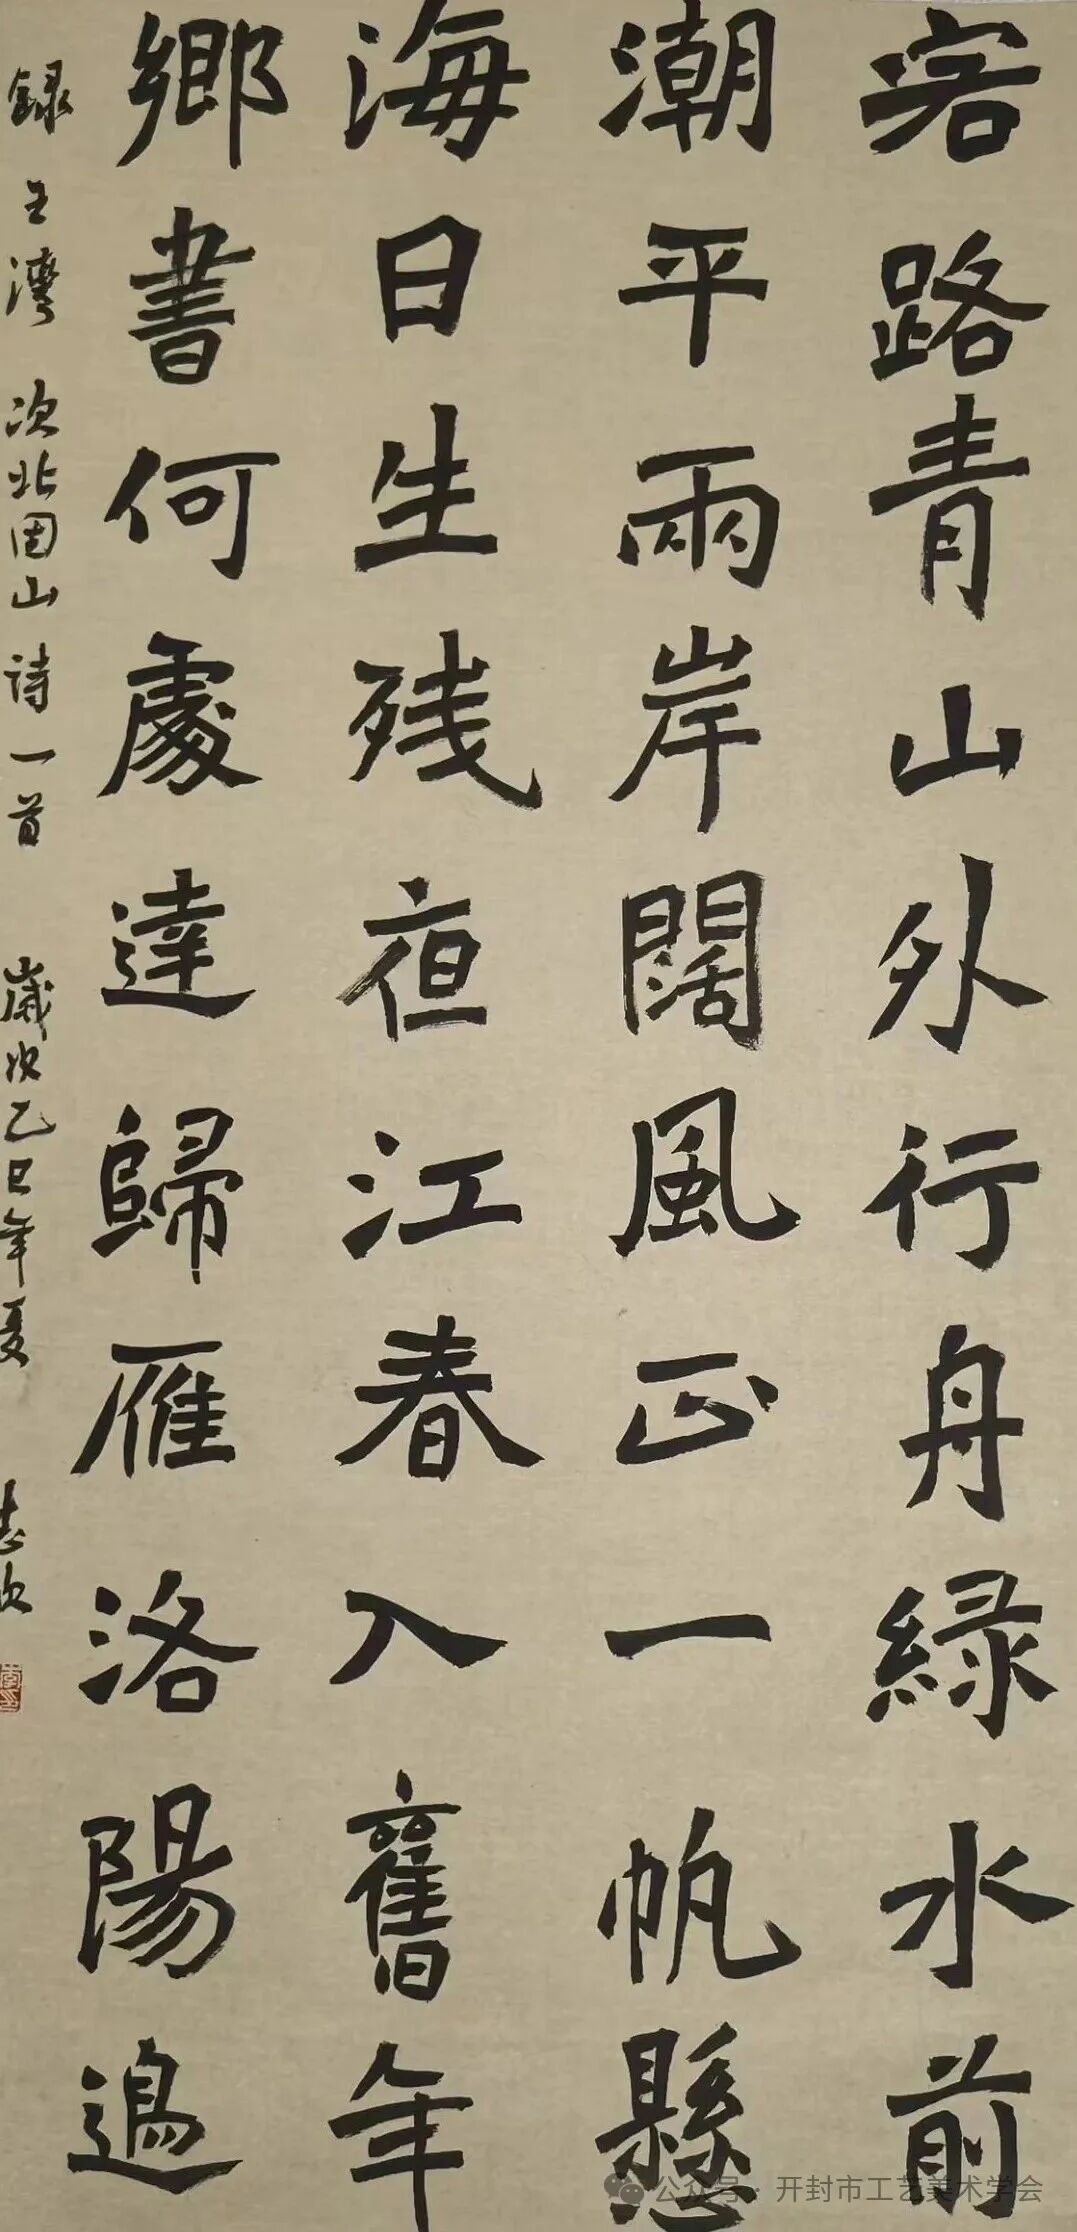 客路青山外行舟緑水前
潮平兩岸闊風正一帆懸
海日生残夜江春入舊年
鄉書何處達歸雁洛陽邊
録王灣次北固山诗一首歲次乙巳年夏
公众号 · 开封市工艺美术学会